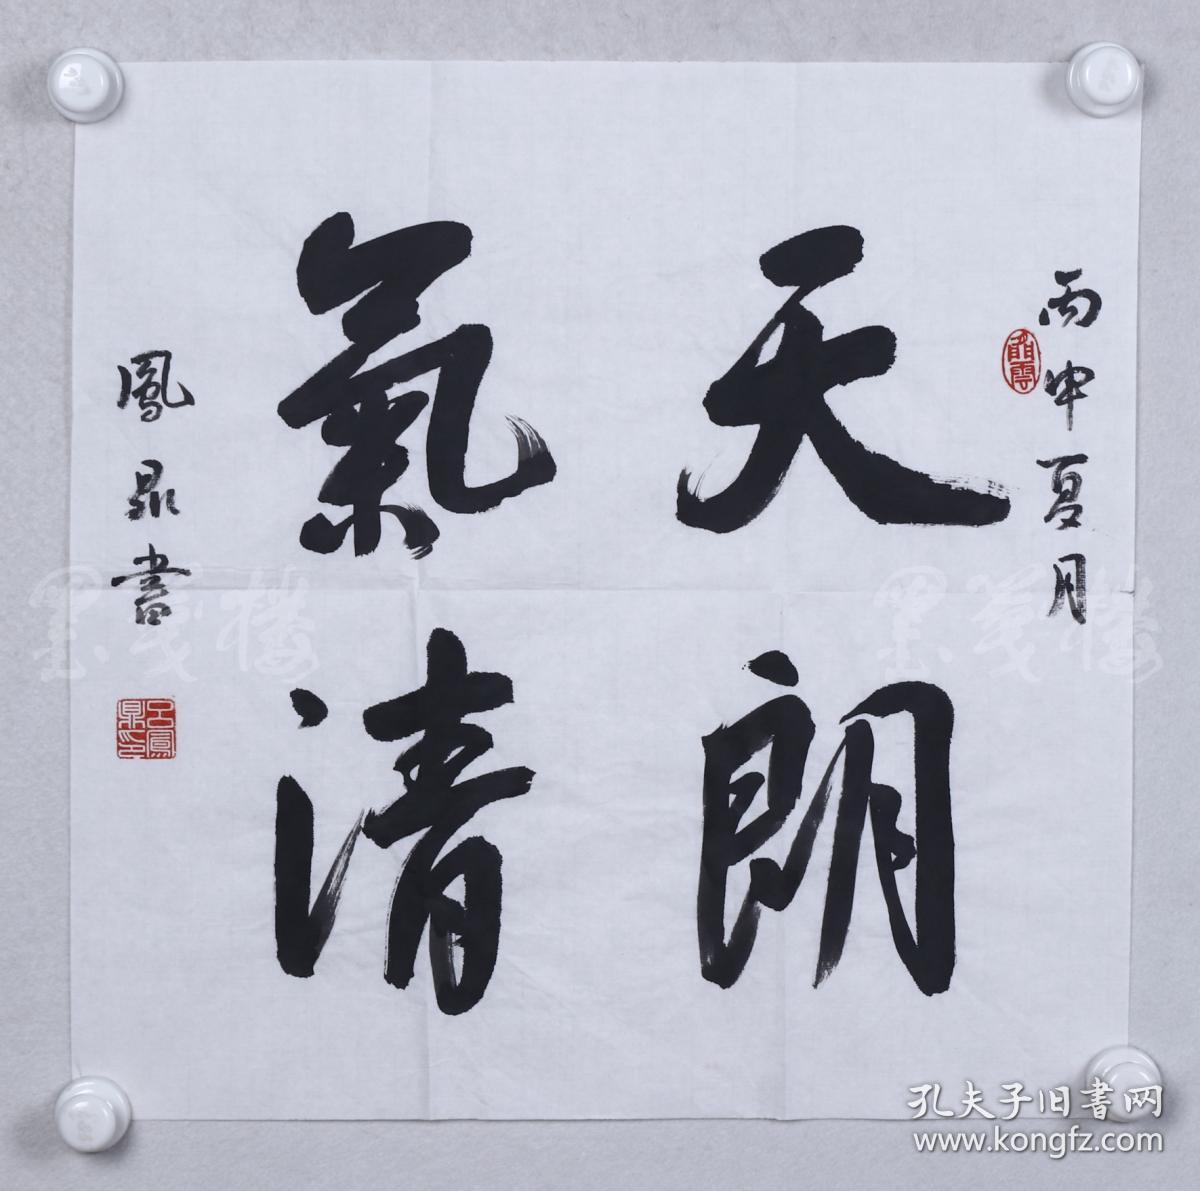 丙申夏月
天朗
氣清
鳳鼎書
墨笺楼
墨笺楼
孔夫子旧书网
www.kongfz.com